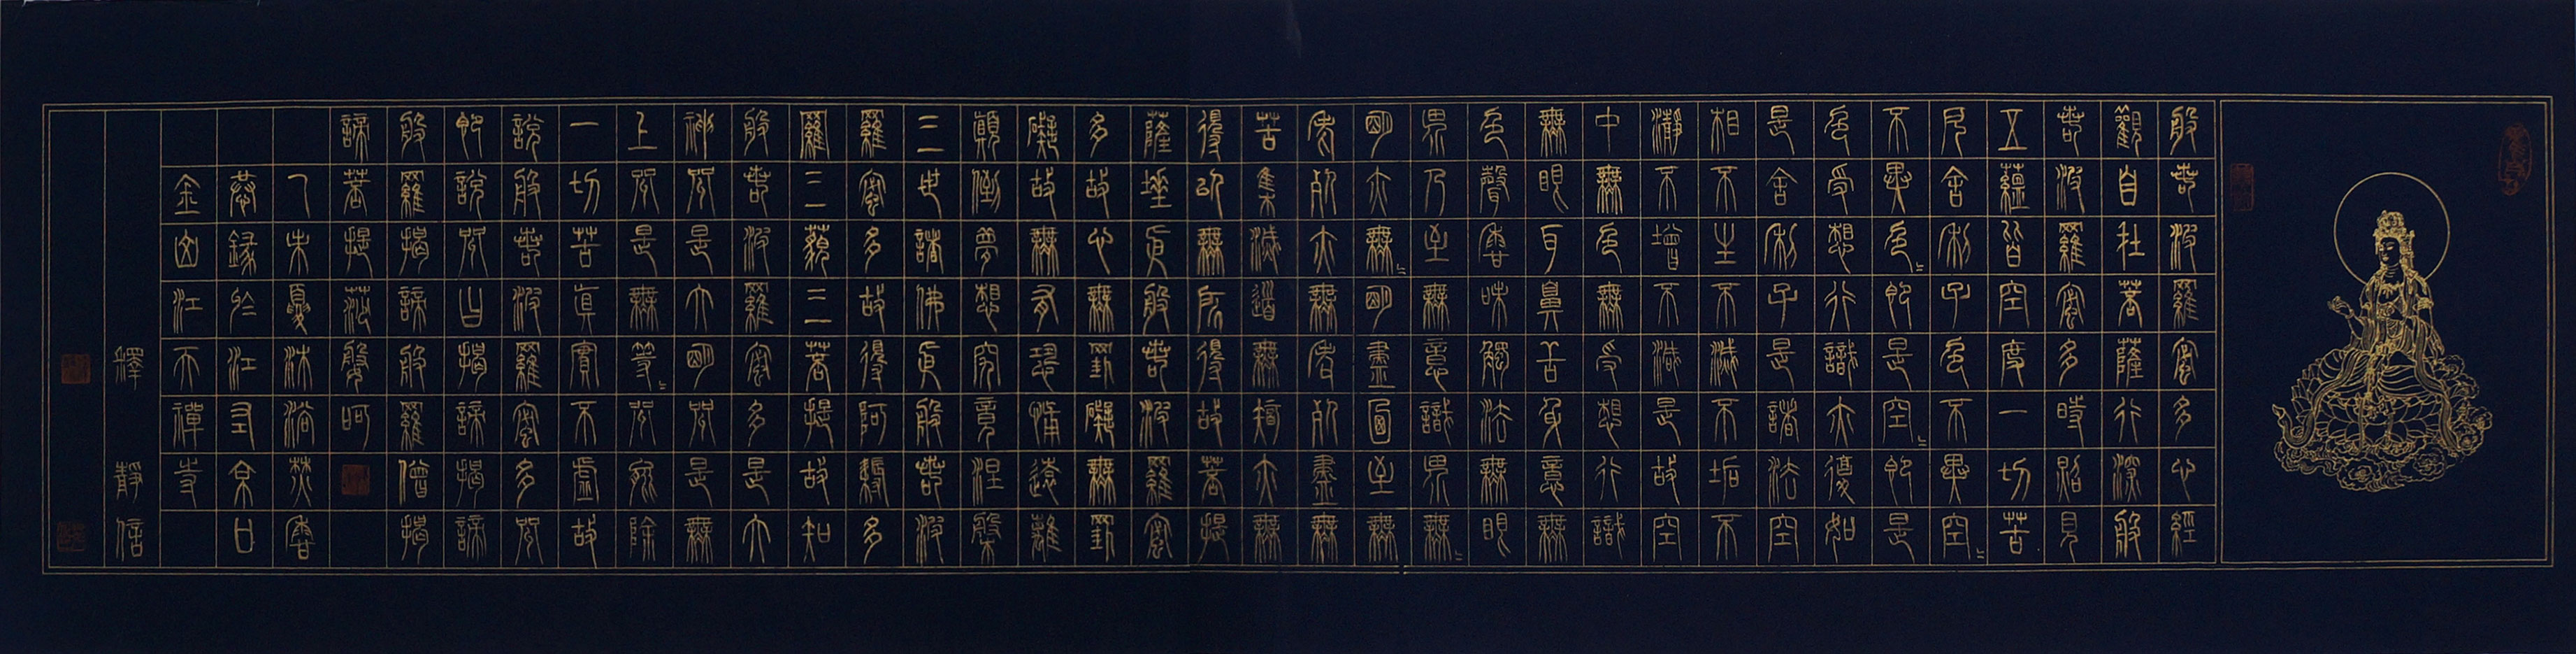 般若波羅蜜多心經
觀自在菩薩行深般
若波羅蜜多時照見
五蘊皆空度一切苦
厄舍利子色不異空〻
不異色〻即是空〻即是
色受想行識亦復如
是舍利子是諸法空
相不生不滅不垢不
淨不增不減是故空
中無色無受想行識
無眼耳鼻舌身意無
色聲香味觸法無眼
界乃至無意識界無〻
明亦無〻明盡乃至無
老死亦無老死盡無
苦集滅道無智亦無
得以無所得故菩提
薩埵依般若波羅蜜
多故心無罣礙無罣
礙故無有恐怖遠離
顛倒夢想究竟涅槃
三世諸佛依般若波
羅蜜多故得阿耨多
羅三藐三菩提故知
般若波羅蜜多是大
神咒是大明咒是無
上咒是無等〻咒能除
一切苦真實不虛故
說般若波羅蜜多咒
即說咒曰揭諦揭諦
般羅揭諦般羅僧揭
諦菩提莎婆呵
乙未夏沐浴焚香
恭錄於江京口
金山江天禪寺
釋靜信